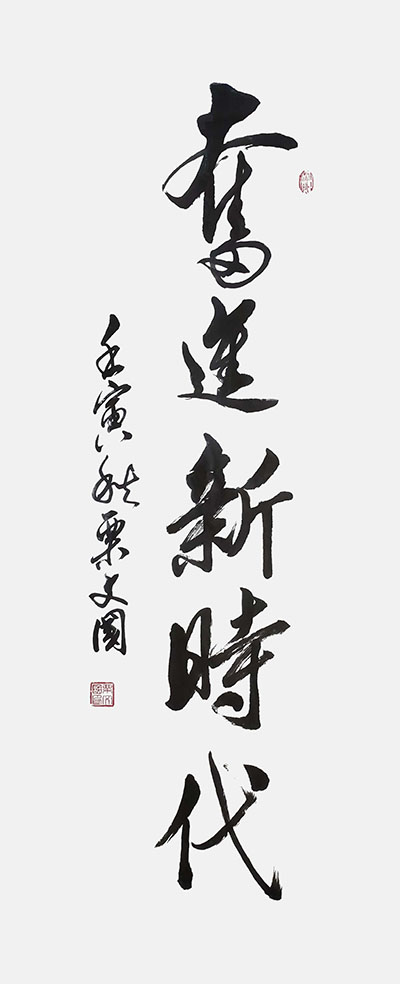 奮進新時代
壬寅秋栗文國